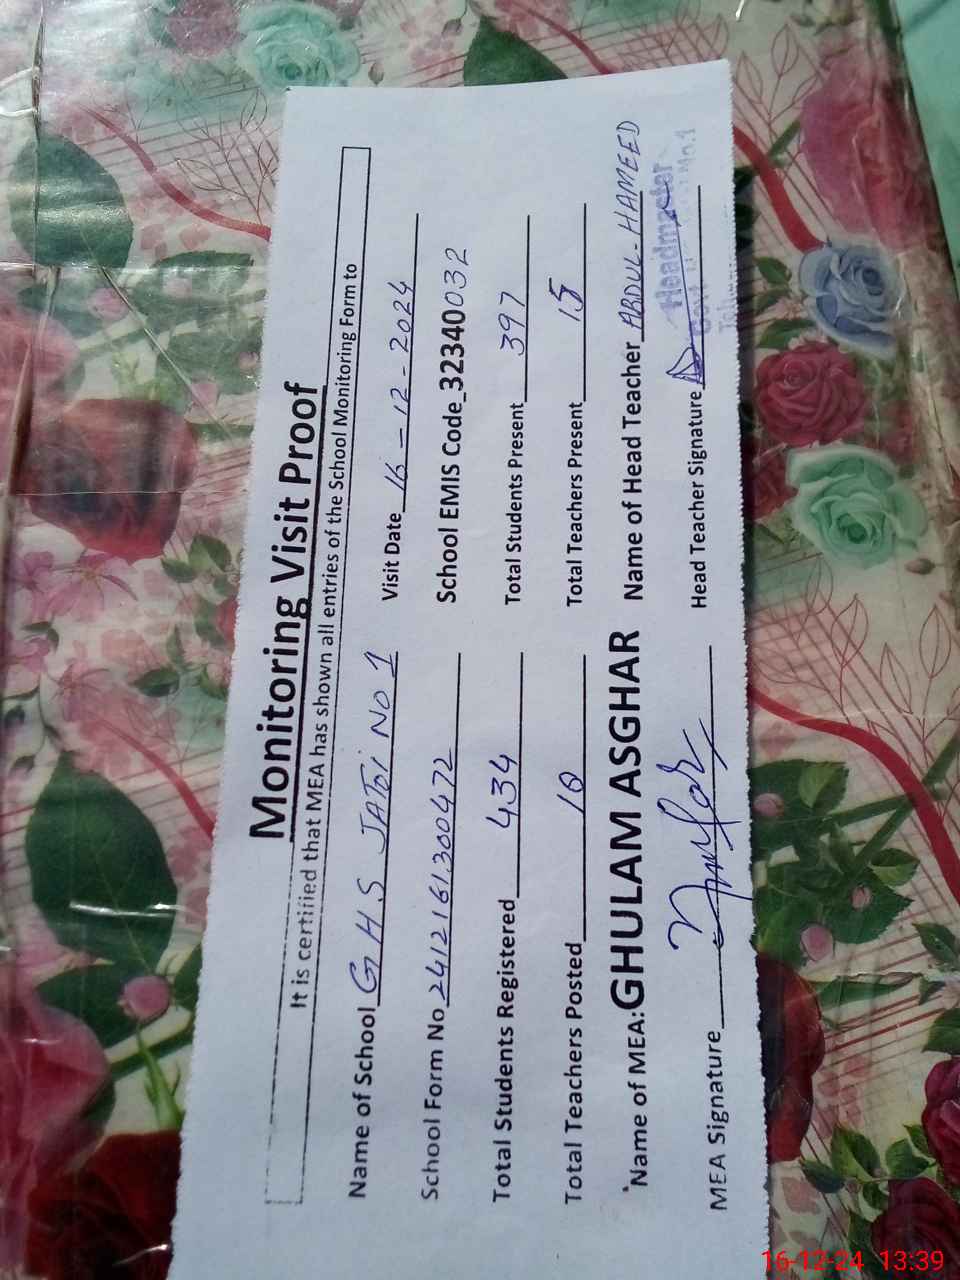 Monitoring Visit Proof
It is certified that MEA has shown all entries of the School Monitoring Form to
Name of School G H S JATOi NO 1 Visit Date 16-12-2024
School Form No 2412161300472 School EMIS Code_32340032
Total Students Registered 434 Total Students Present 397
Total Teachers Posted 18 Total Teachers Present 15
Name of MEA:GHULAM ASGHAR Name of Head Teacher ABDUL-HAMEED
MEA Signature Head Teacher Signature
Headmaster
No.1
16-12-24 13:39